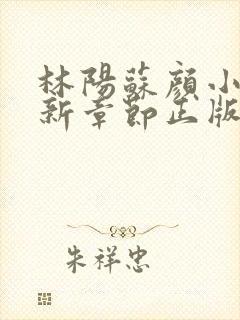 林陽蘇顔小
新章節正版
朱祥忠